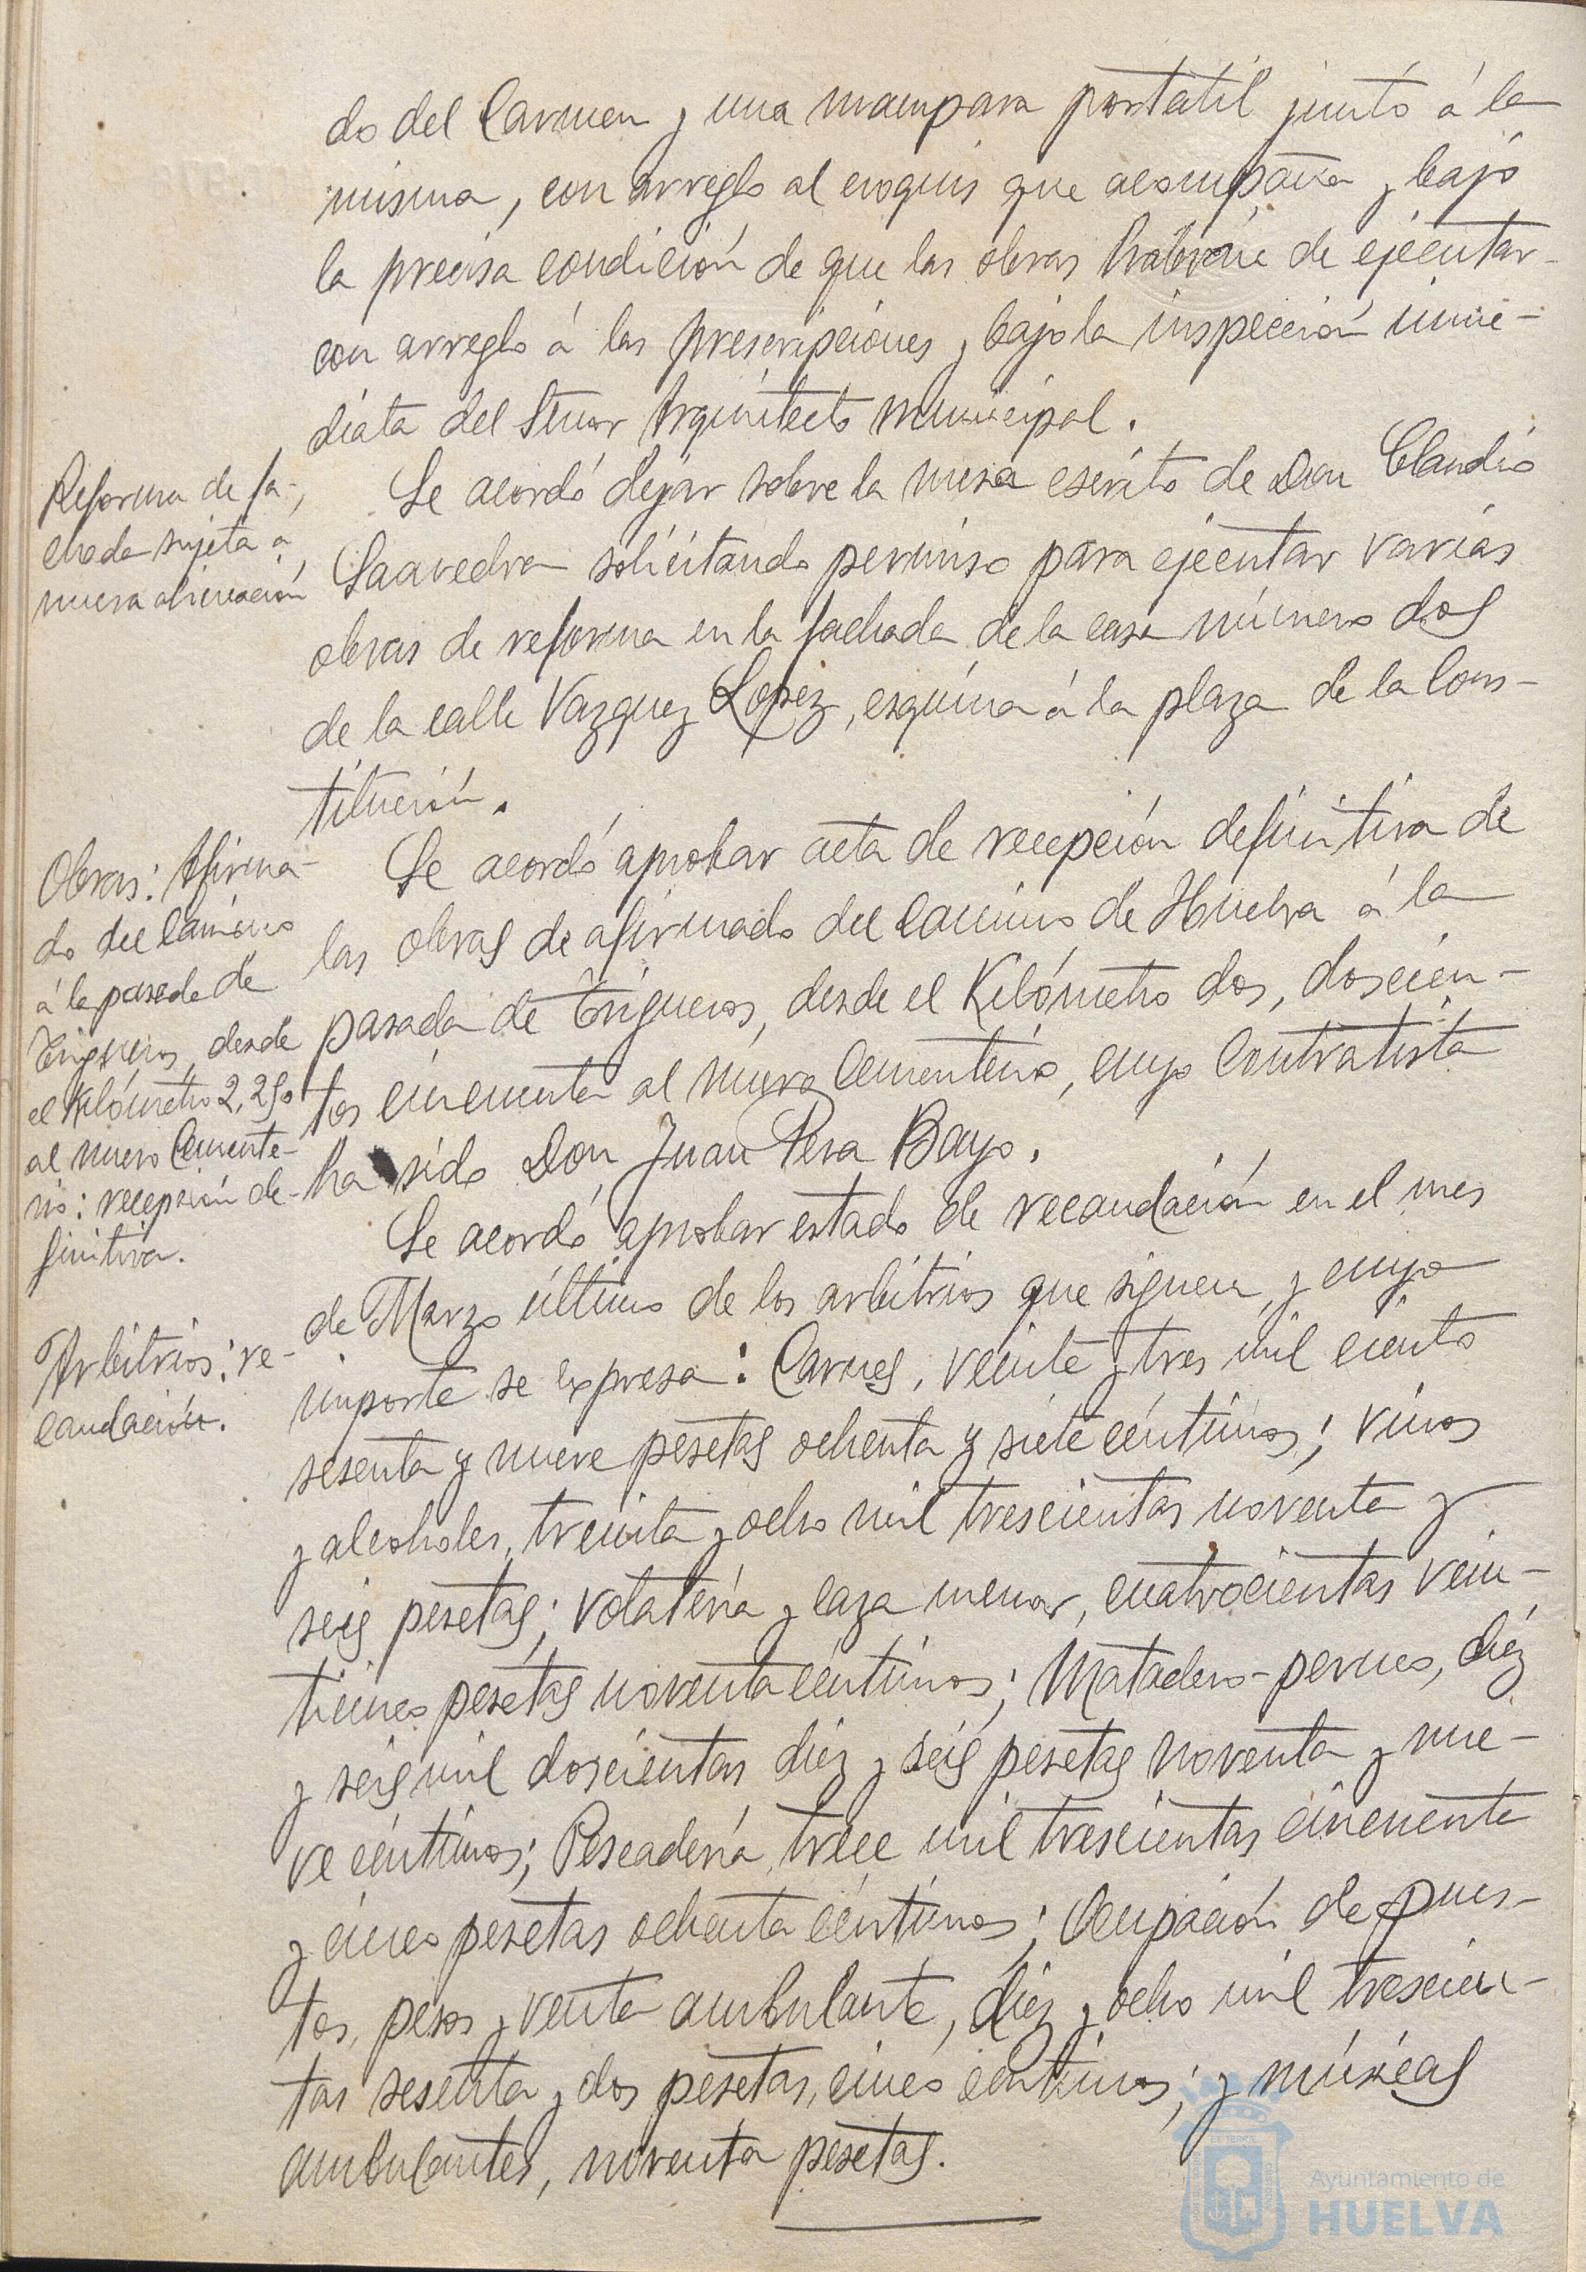 do del Carmen y una mampara portátil junto á la
misma, con arreglo al croquis que acompaña y bajo
la precisa condición de que las obras habrán de ejecutar-
con arreglo á las prescripciones y bajo la inspección inme-
diata del Señor Arquitecto municipal.
Reforma de fa-
chada sujeta a
nueva alineación
Se acordó dejar sobre la mesa escrito de Don Claudio
Saavedra solicitando permiso para ejecutar varias
obras de reforma en la fachada de la casa número dos
de la calle Vazquez Lopez, esquina á la plaza de la Cons-
titución.
Obras: Afirma-
do del Camino
á la pasada de
Trigueros, desde
el Kilómetro 2,250
al nuevo Cemente-
rio: recepción de-
finitiva.
Se acordó aprobar acta de recepción definitiva de
las obras de afirmado del Camino de Huelva á la
pasada de Trigueros, desde el Kilómetro dos, doscien-
tos cincuenta al nuevo Cementerio, cuyo Contratista
ha sido Don Juan Pera Bayo.
Arbitrios: re-
caudación.
Se acordó aprobar estado de recaudación en el mes
de Marzo último de los arbitrios que siguen y cuyo
importe se expresa: Carnes, veinte y tres mil ciento
sesenta y nueve pesetas ochenta y siete céntimos; vinos
y alcoholes, treinta y ocho mil trescientas noventa y
seis pesetas; volatería y caza menor, cuatrocientas vein-
ticinco pesetas noventa céntimos; Matadero-perneo, diéz
y seis mil doscientas diéz y seis pesetas noventa y nue-
ve céntimos; Pescadería, trece mil trescientas cincuenta
y cinco pesetas ochenta céntimos; Ocupación de pues-
tos, pesos y venta ambulante, diéz y ocho mil trescien-
tas sesenta y dos pesetas, cinco céntimos; y músicas
ambulantes, noventa pesetas.
Ayuntamiento de
HUELVA